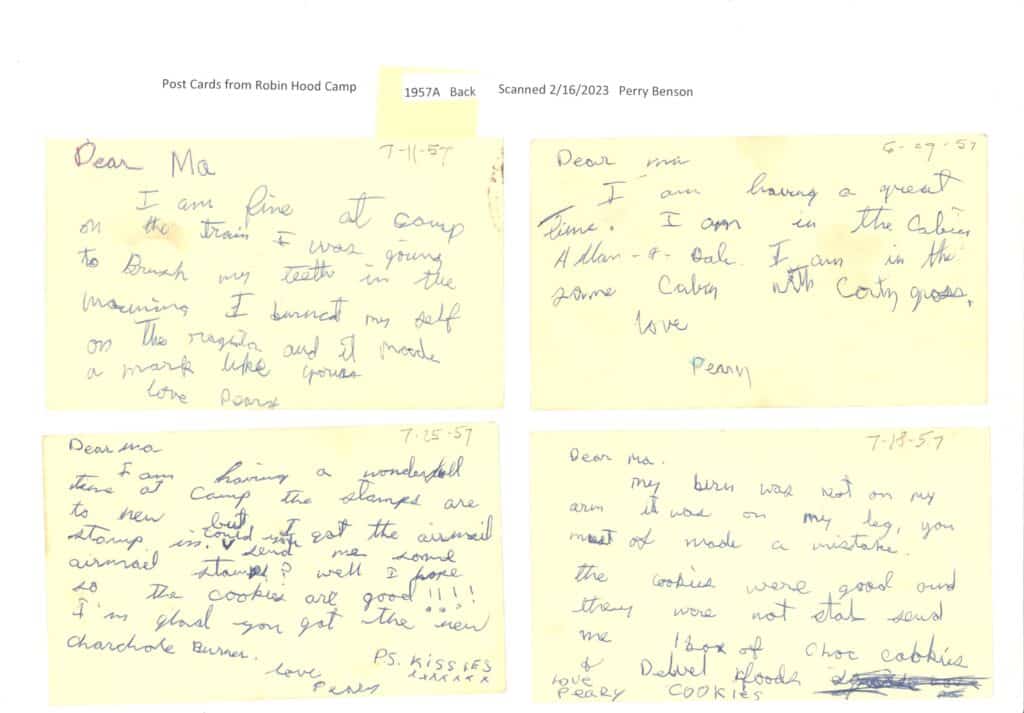 Post Cards from Robin Hood Camp 1957A Back Scanned 2/16/2023 Perry Benson
7-11-57
Dear Ma
I am fine at camp
on the train I was going
to Brush my teeth in the
morning I burned my self
on the and it made
a mark like yours
love Peary
6-29-57
Dear ma
I am having a great
time. I am in the Cabin
I am in the
same Cabin with
love
Peary
7-25-57
Dear ma
I am having a wonderfull
time at Camp the stamps are
to new but I got the airmail
stamp in. could you send me some
airmail stamps? well I hope
so the cookies are good !!!!
I'm glad you got the new
charchole Burner.
love
Peary
PS. KISSIES
xxxxxxx
7-18-57
Dear Ma.
my burn was not on my
arm it was on my leg, you
must of made a mistake.
the cookies were good and
they were not stail send
me 1 box of choc cookies
& foods
COOKIES
love
Peary